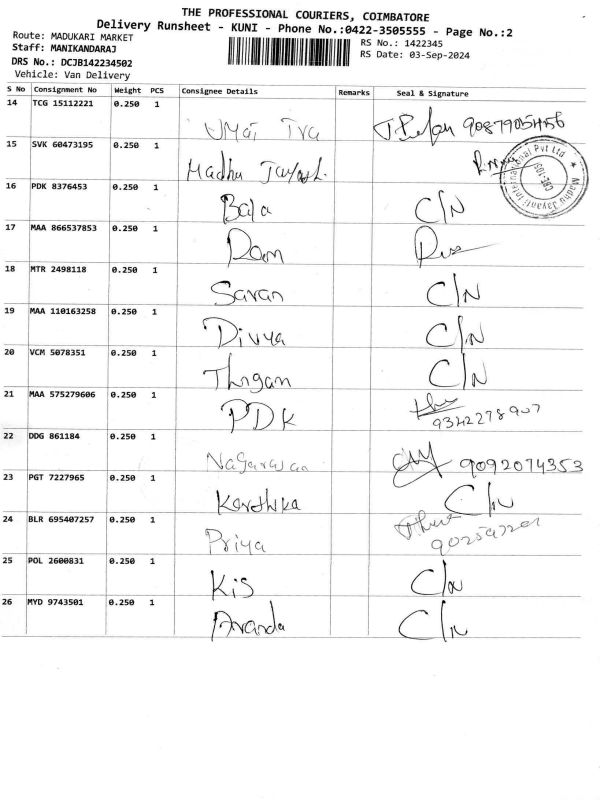 THE PROFESSIONAL COURIERS, COIMBATORE
Delivery Runsheet - KUNI - Phone No.:0422-3505555 - Page No.:2
Route: MADUKARI MARKET
RS No.: 1422345
Staff: MANIKANDARAJ
RS Date: 03-Sep-2024
DRS No.: DCJB142234502
Vehicle: Van Delivery
S No Consignment No Weight PCS Consignee Details Remarks Seal & Signature
14 TCG 15112221 0.250 1 Umai
15 SVK 60473195 0.250 1 Madhu
Madhu Jayanti International Pvt Ltd
16 PDK 8376453 0.250 1 Baja C/N
17 MAA 866537853 0.250 1 Ram
18 MTR 2498118 0.250 1 Savan C/N
19 MAA 110163258 0.250 1 Divya C/N
20 VCM 5078351 0.250 1 Thigan C/N
21 MAA 575279606 0.250 1 PDK
22 DDG 861184 0.250 1 9092074353
23 PGT 7227965 0.250 1 Karthika C/N
24 BLR 695407257 0.250 1 Priya
25 POL 2600831 0.250 1 Kis C/N
26 MYD 9743501 0.250 1 Ananda C/N